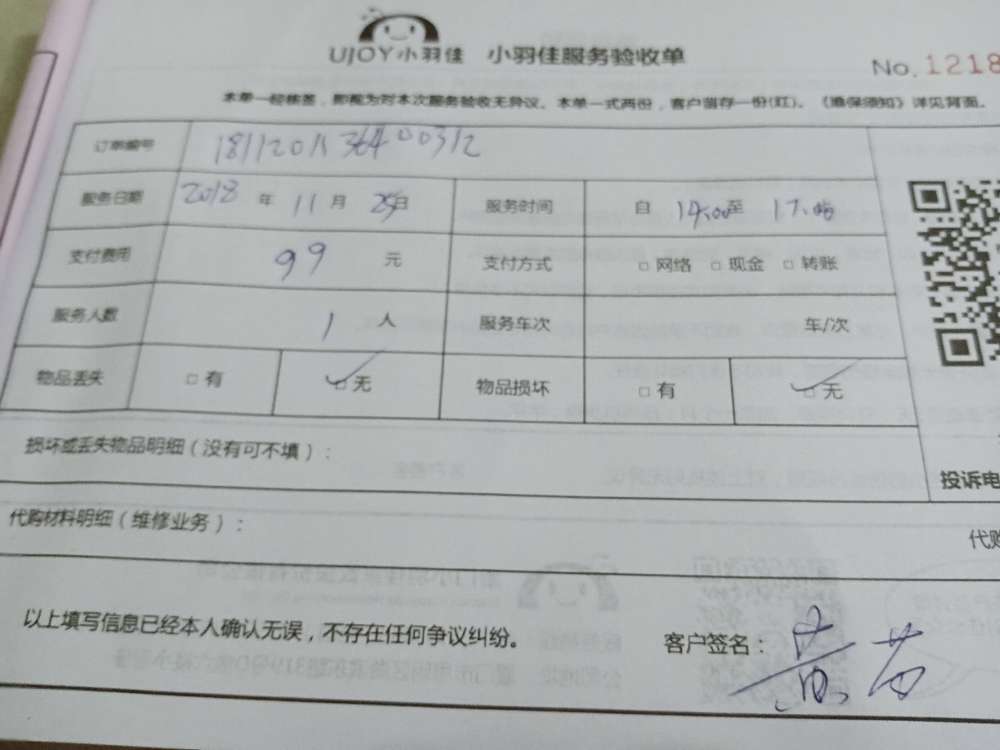 UJOY小羽佳 小羽佳服务验收单
No. 1218
本单一经核签，即视为对本次服务验收无异议。本单一式两份，客户留存一份(红)。《维保须知》详见背面。
订单编号
服务日期 2018 年 11 月 日 服务时间 自 14:00 至 17:00
支付费用 99 元 支付方式 □ 网络 □ 现金 □ 转账
服务人数 1 人 服务车次 车/次
物品丢失 □ 有 ✓□ 无 物品损坏 □ 有 ✓□ 无
损坏或丢失物品明细（没有可不填）：
投诉电
代购材料明细（维修业务）：
代购
以上填写信息已经本人确认无误，不存在任何争议纠纷。
客户签名：